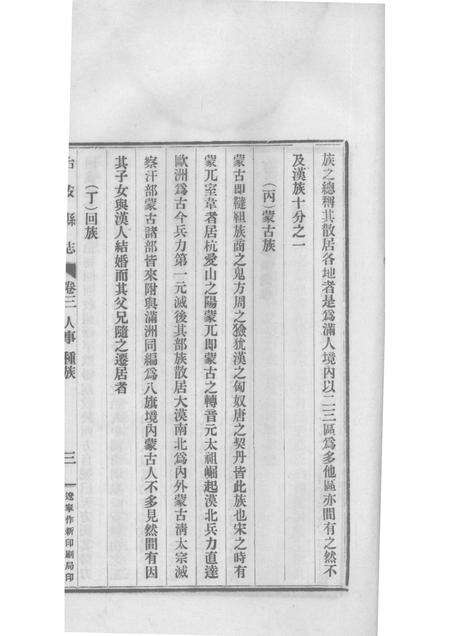 族之總稱其散居各地者是爲滿人境內以二三區爲多他區亦間有之然不
及漢族十分之一
（丙）蒙古族
蒙古即韃祖族商之鬼方周之獫狁漢之匈奴唐之契丹皆此族也宋之時有
蒙兀室韋者居杭愛山之陽蒙兀即蒙古之轉音元太祖崛起漠北兵力直達
歐洲爲古今兵力第一元滅後其部族散居大漠南北爲內外蒙古淸太宗滅
察汗部蒙古諸部皆來附與滿洲同編爲八旗境內蒙古人不多見然間有因
其子女與漢人結婚而其父兄隨之遷居者
（丁）回族
縣志
卷三 人事 種族
三
遼寧作新印刷局印